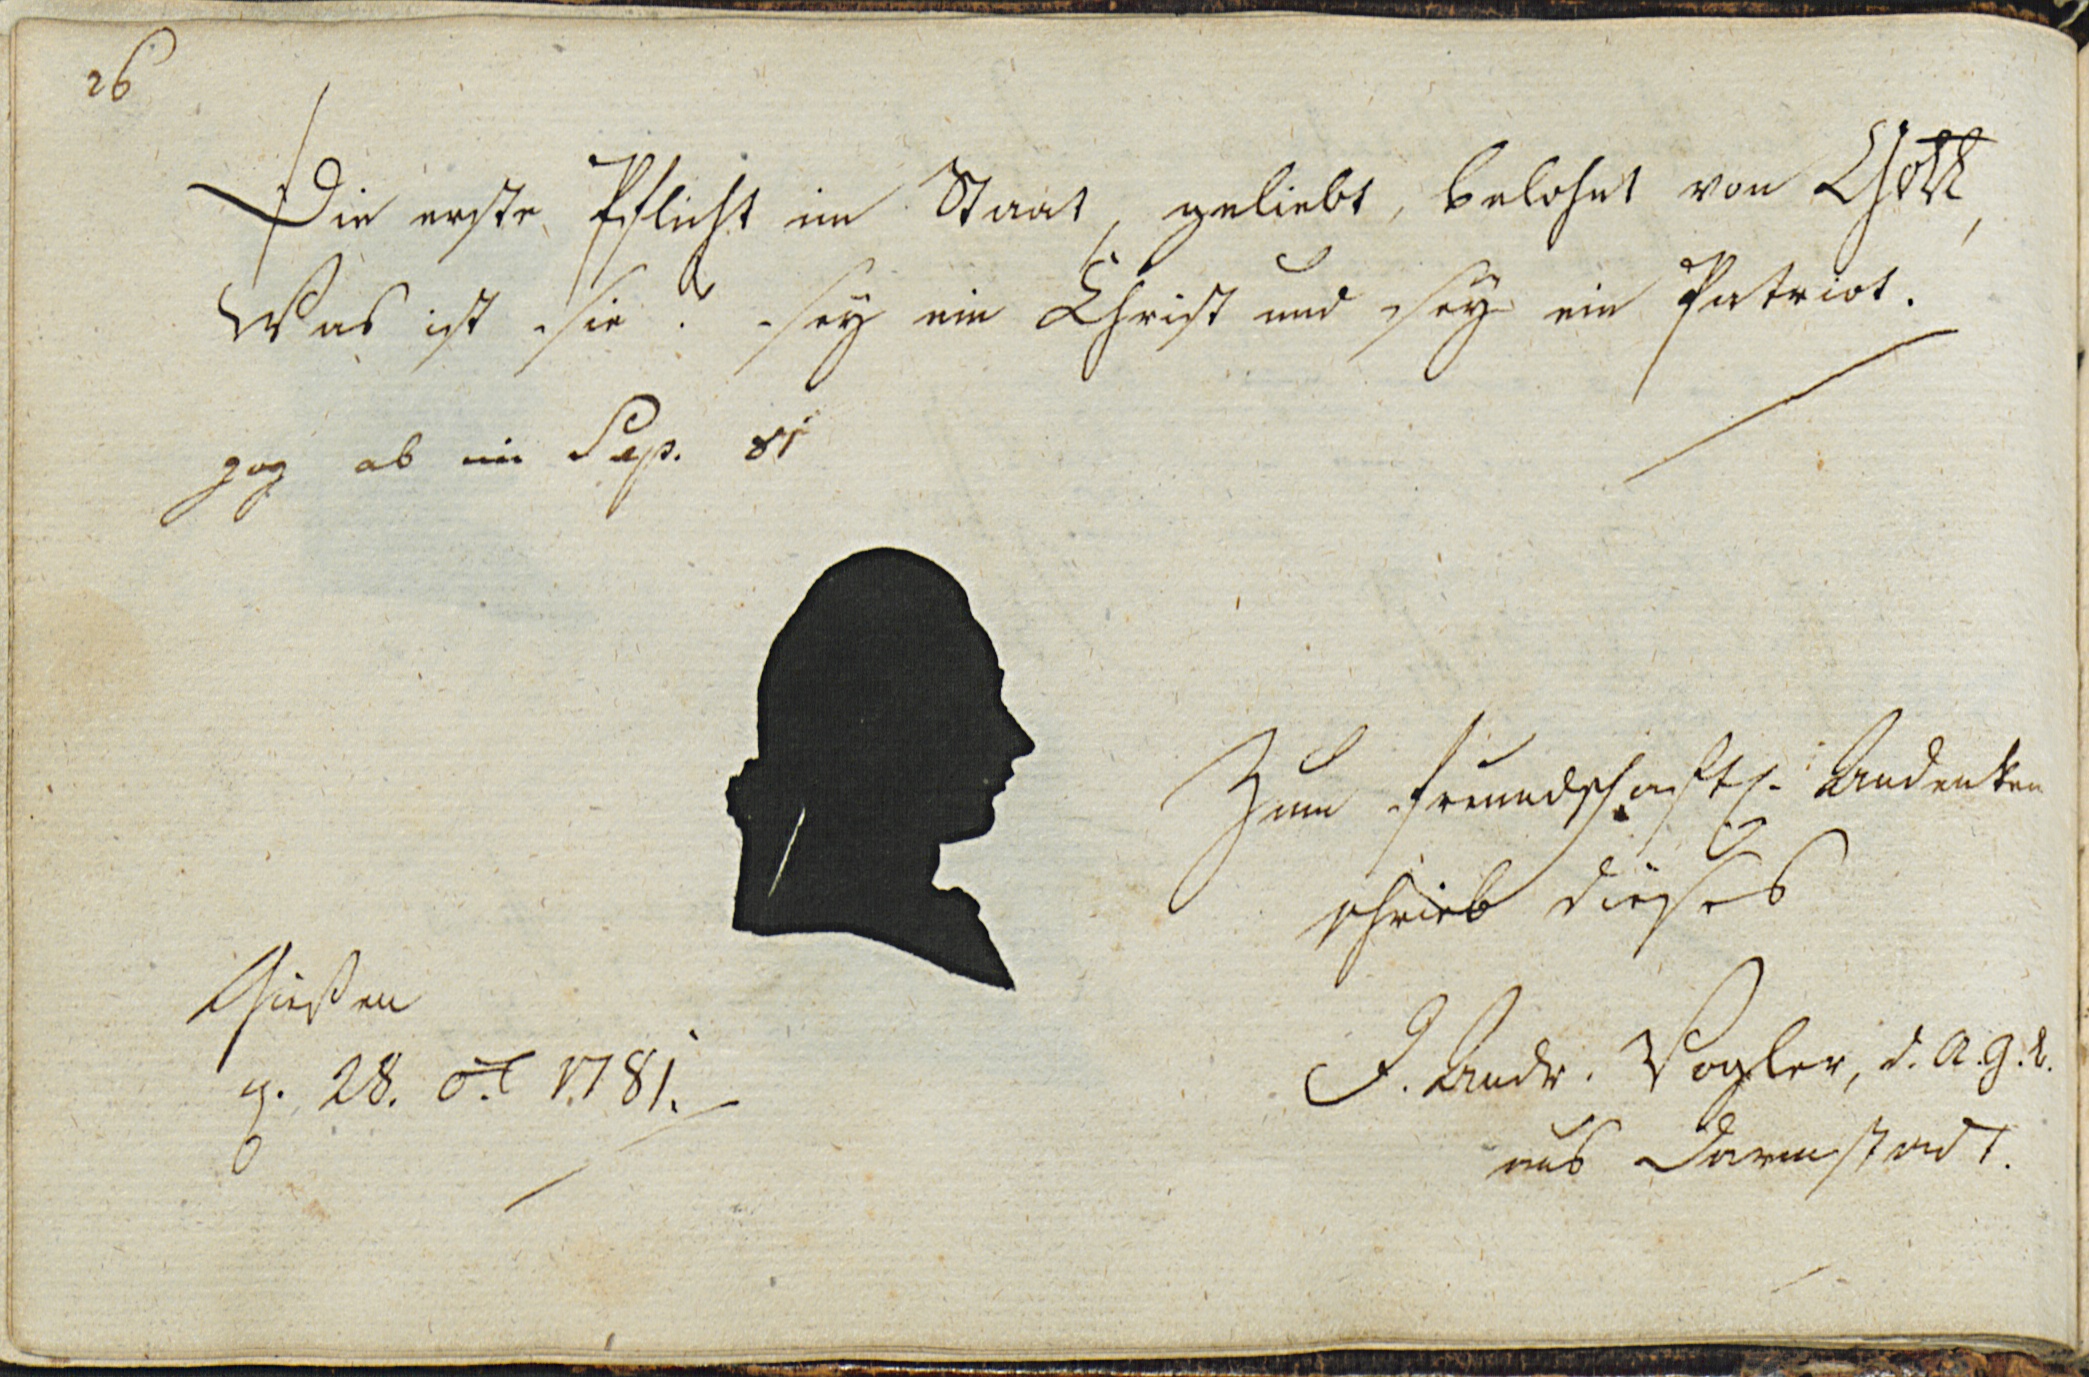 26
Die erste Pflicht im Staat, geliebt, belohnt von Gott,
Was ist sie? sey ein Christ und sey ein Patriot.
zog ab im Sep. 81
Zum freundschaftl. Andenken
schrieb dieses
Giesen
28. 1781.
J. Andr. Vogler, d. A. g. b.
aus Darmstadt.